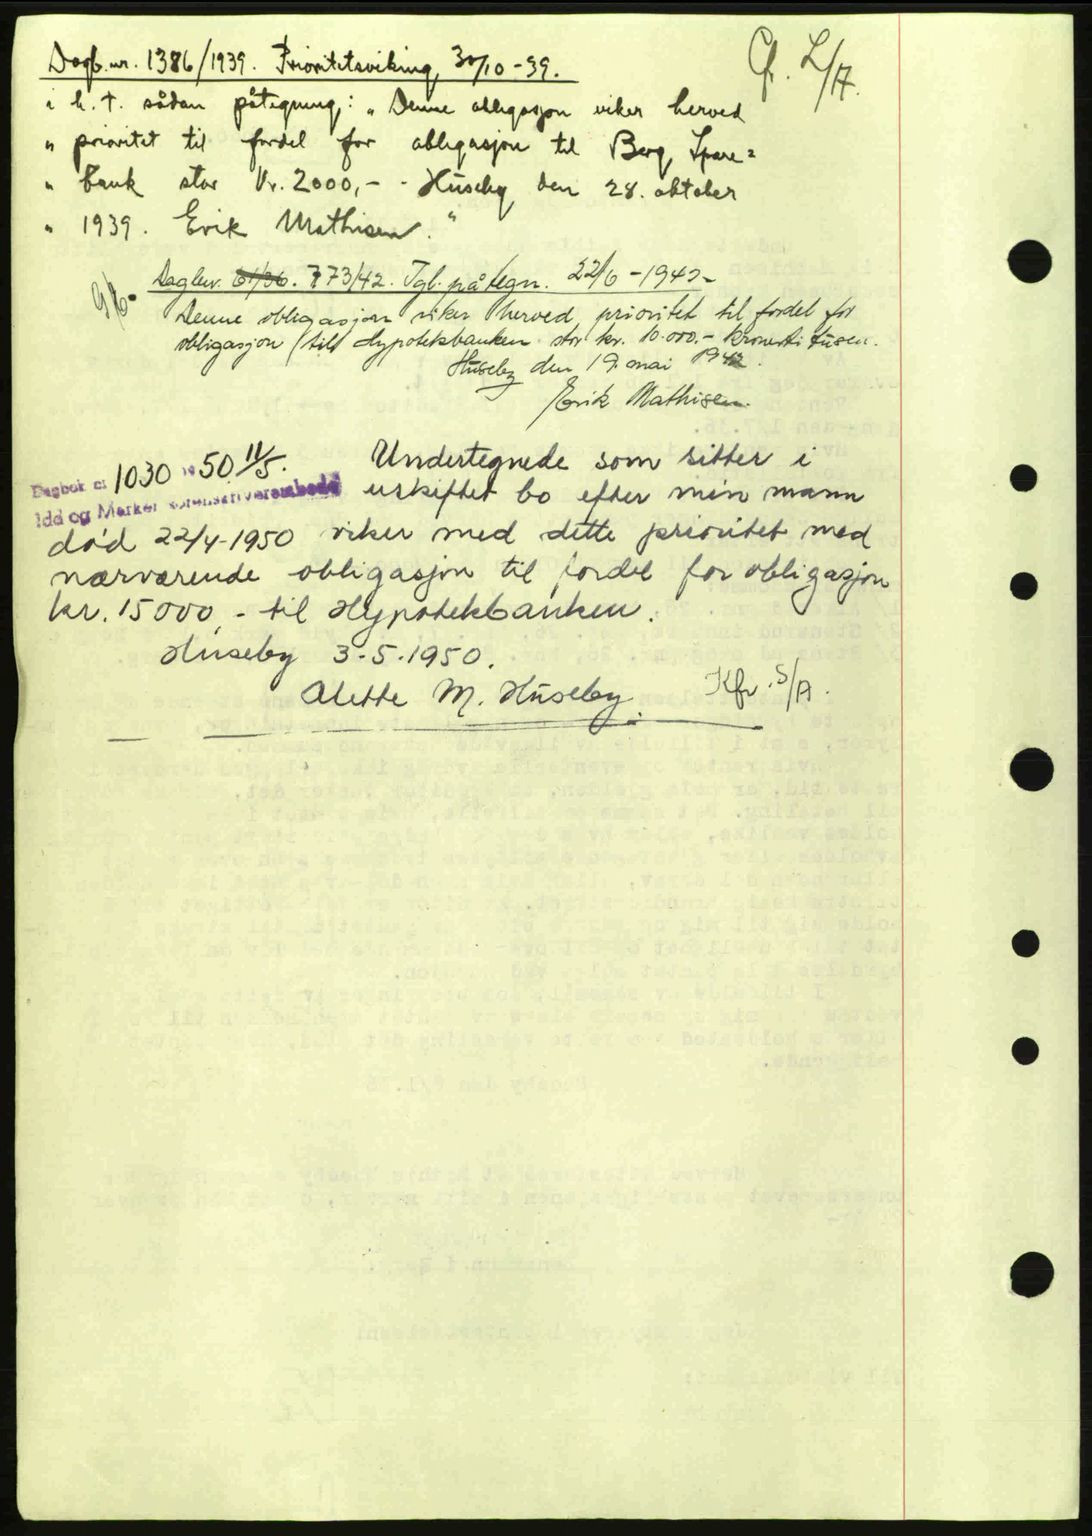 Dagb. nr. 1386/1939. Prioritetsviking, 30/10-39.
i h. t. sådan påtegning: „Denne obligasjon viker herved
„ prioritet til fordel for obligasjon til Berg Spare=
„ bank stor Kr. 2000,- - Huseby den 28. oktober
„ 1939. Erik Mathisen."
Cfr. L/A.
Dagbnr. 61/36. 773/42. Tgl. påtegn. 22/6-1942-
Denne obligasjon viker herved prioritet til fordel for
obligasjon til Hypotekbanken stor kr. 10.000.- kroner ti tusen.
Huseby den 19. mai 1942.
Erik Mathisen.
Dagbok nr 1030 19 50 11/5.
Idd og Marker sorenskriverembede
Undertegnede som sitter i
uskiftet bo efter min mann
død 22/4-1950 viker med dette prioritet med
nærværende obligasjon til fordel for obligasjon
kr. 15000,- til Hypotekbanken.
Huseby 3-5-1950.
Alette M. Huseby.
Kfr. S/A.